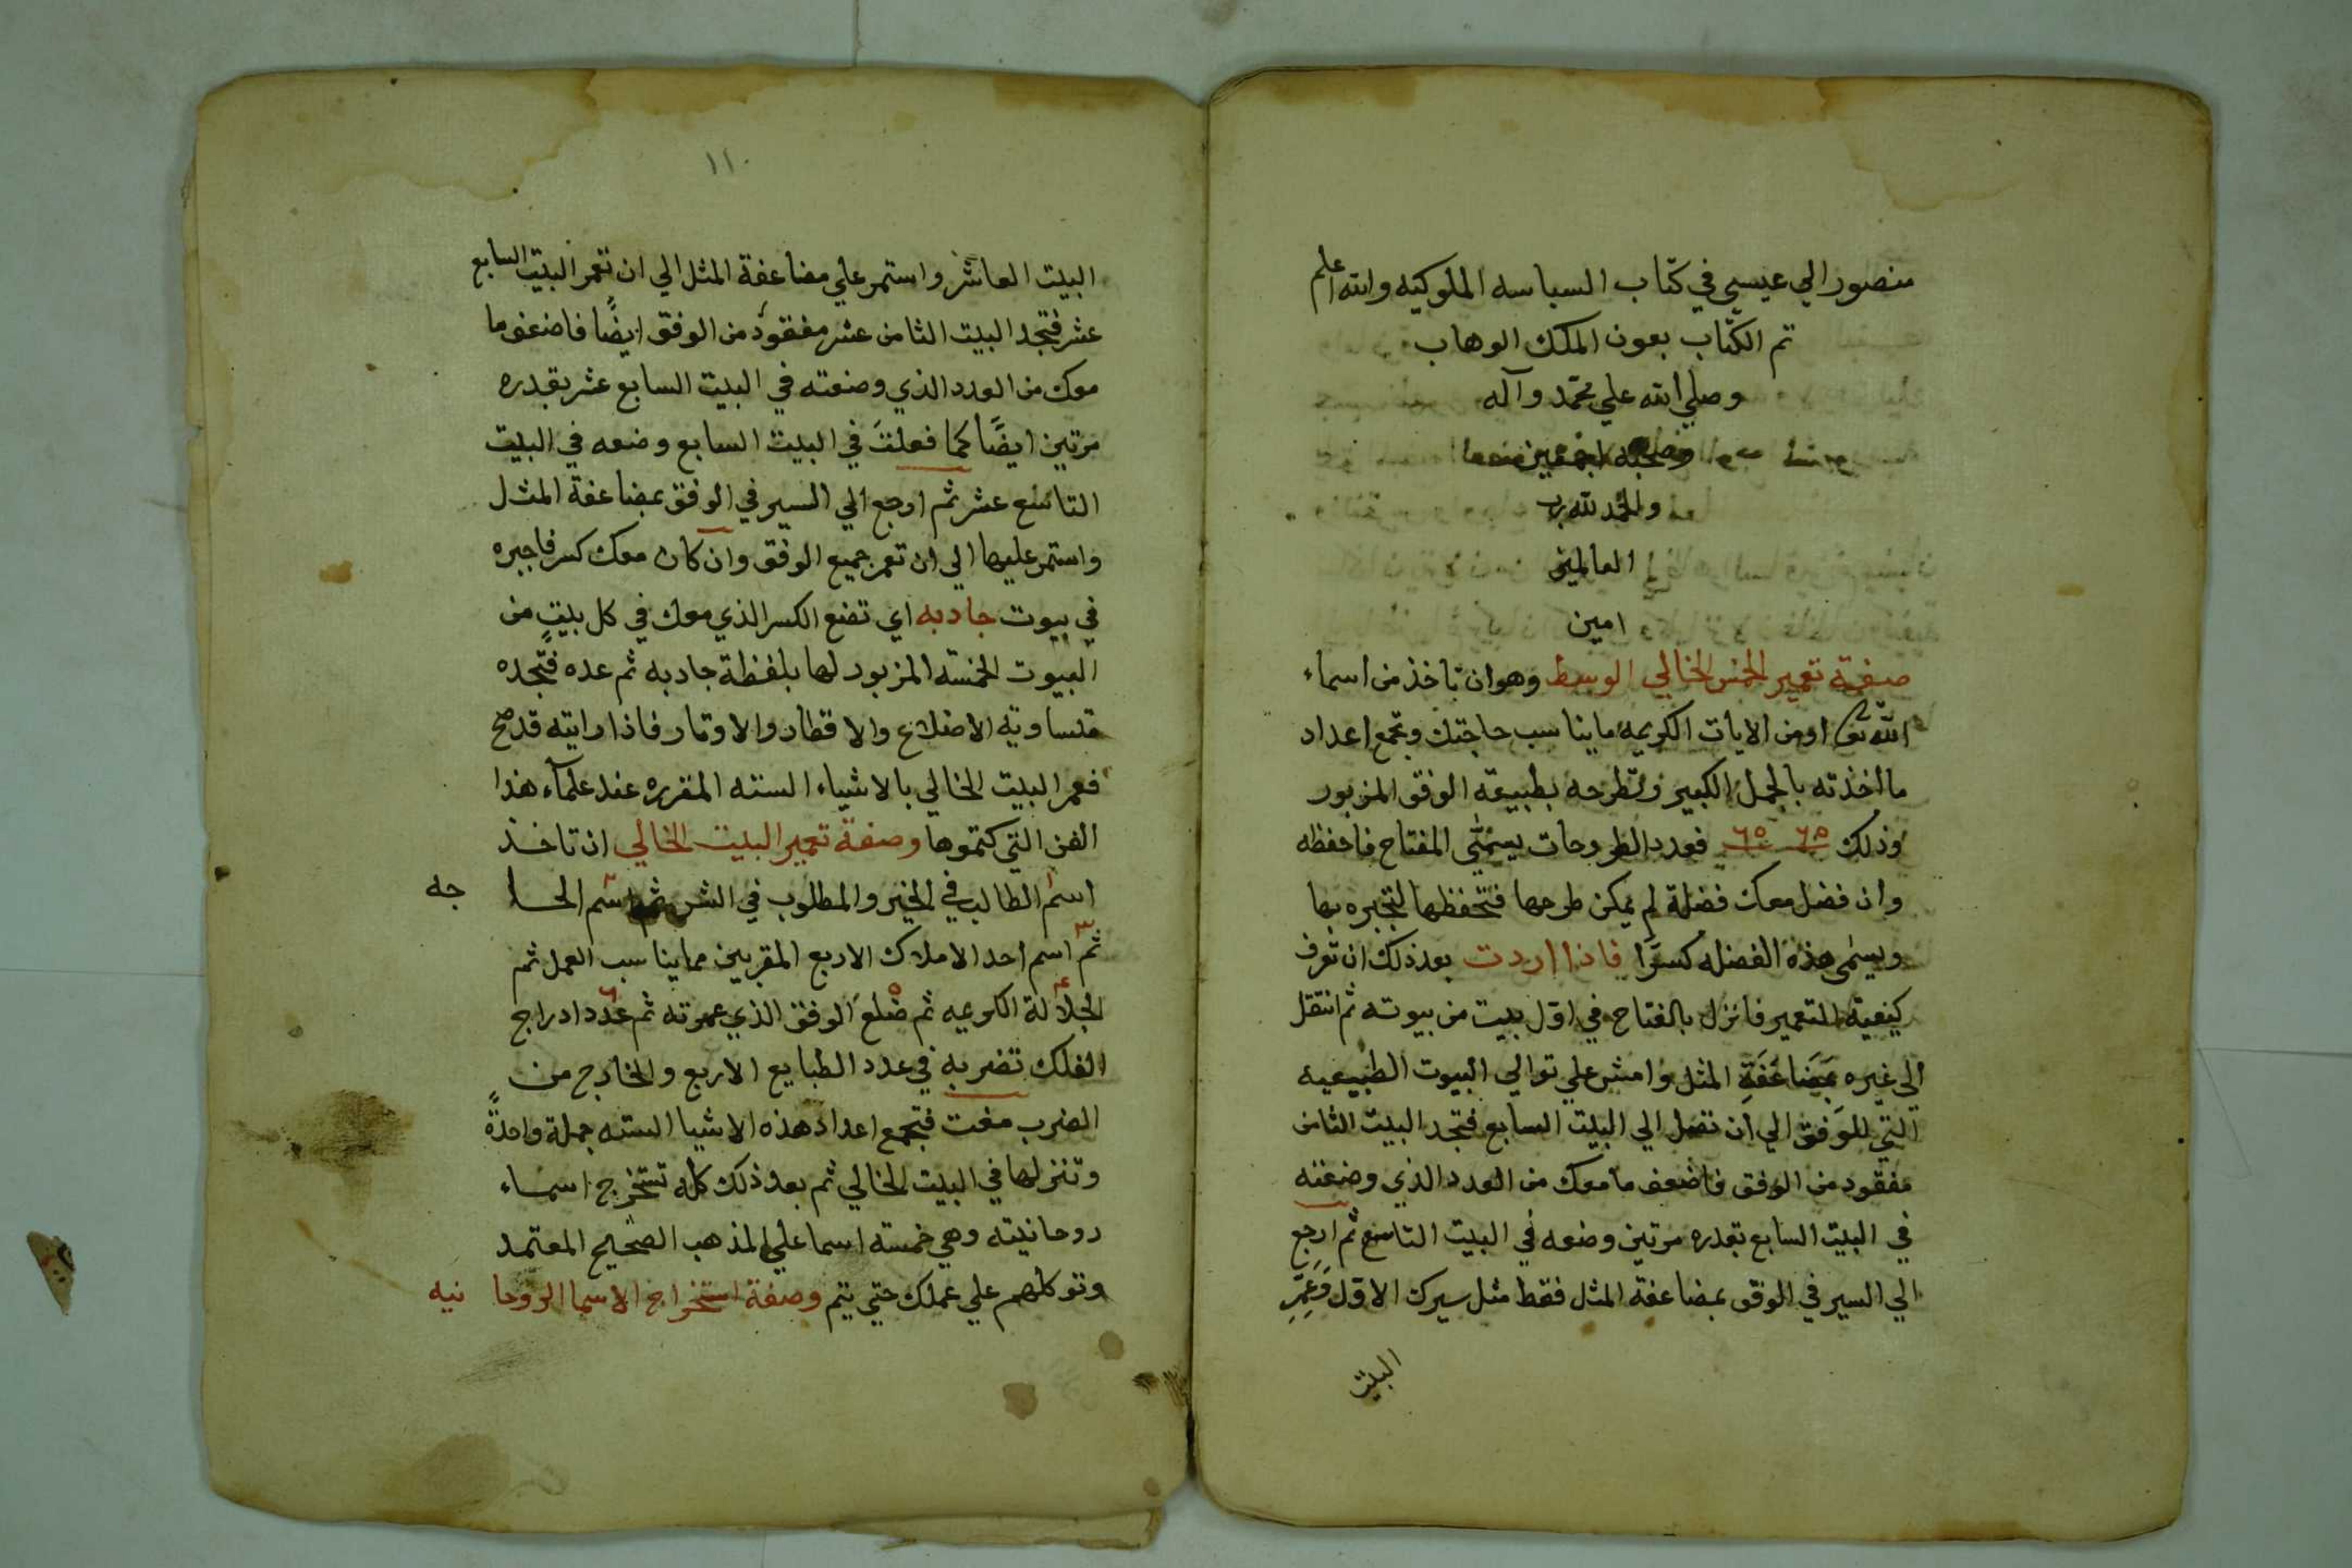 منصور الي عيسي في كتاب السياسه الملوكيه والله اعلم
تم الكتاب بعون الملك الوهاب
وصلي الله علي محمد وآله
وصحبه اجمعين
والحمد لله رب
العالمين
امين
صفة تعمير المخمس الخالي الوسط وهو ان تاخذ من اسماء
الله تعالى او من الايات الكريمه ما يناسب حاجتك وتجمع اعداد
ما اخذته بالجمل الكبير وتطرحه بطبيعة الوفق المزبور
وذلك ٦٥ ٦٥ فعدد الطروحات يسمّى المفتاح فاحفظه
وان فضل معك فضلة لم يمكن طرحها فتحفظها لتجبره بها
ويسمى هذه الفضله كسرًا فاذا اردت بعد ذلك ان تعرف
كيفية التعمير فانزل بالمفتاح في اوّل بيت من بيوته ثم انتقل
الى غيره بمَضَاعَفَةِ المثل وامش علي توالي البيوت الطبيعيه
التي للوفق الي أن تصل الي البيت السابع فتجد البيت الثامن
مفقود من الوفق فاضعف ما معك من العدد الذي وضعته
في البيت السابع بقدره مرتين وضعه في البيت التاسع ثم ارجع
الي السير في الوفق بمضاعفة المثل فقط مثل سيرك الاوّل وَعَمِّرِ
البيت
١١٠
البيت العاشر واستمر علي مضاعفة المثل الي ان تعمر البيت السابع
عشر فتجد البيت الثامن عشر مفقود من الوفق ايضًا فاضعف ما
معك من العدد الذي وضعته في البيت السابع عشر بقدره
مرتين ايضًا كما فعلتَ في البيت السابع وضعه في البيت
التاسع عشر ثم ارجع الي السير في الوفق بمضاعفة المثل
واستمر عليها الي ان تعمر جميع الوفق وان كان معك كسر فاجبره
في بيوت جادبه اي تضع الكسر الذي معك في كل بيت من
البيوت الخمسه المزبور لها بلفظة جادبه ثم عده فتجده
متساوية الاضلاع والاقطار والاوتار فاذا رايته قد صح
فعمر البيت الخالي بالاشياء السته المقرره عند علمآء هذا
الفن التي كتموها وصفة تعمير البيت الخالي ان تاخذ
اسم الطالب في الخير والمطلوب في الشر ثم اسم الحا جه
ثم اسم احد الاملاك الاربع المقربين مما يناسب العمل ثم
الجلالة الكريمه ثم ضلع الوفق الذي عمرته ثم عدد ادراج
الفلك تضربه في عدد الطبايع الاربع والخارج من
الضرب مغت فتجمع اعداد هذه الاشيا السته جملة واحدةً
وتنزلها في البيت الخالي ثم بعد ذلك كله تستخرج اسماء
روحانيته وهي خمسته اسما علي المذهب الصحيح المعتمد
وتوكلهم علي عملك حتي يتم وصفة استخراج الاسما الروحا نيه